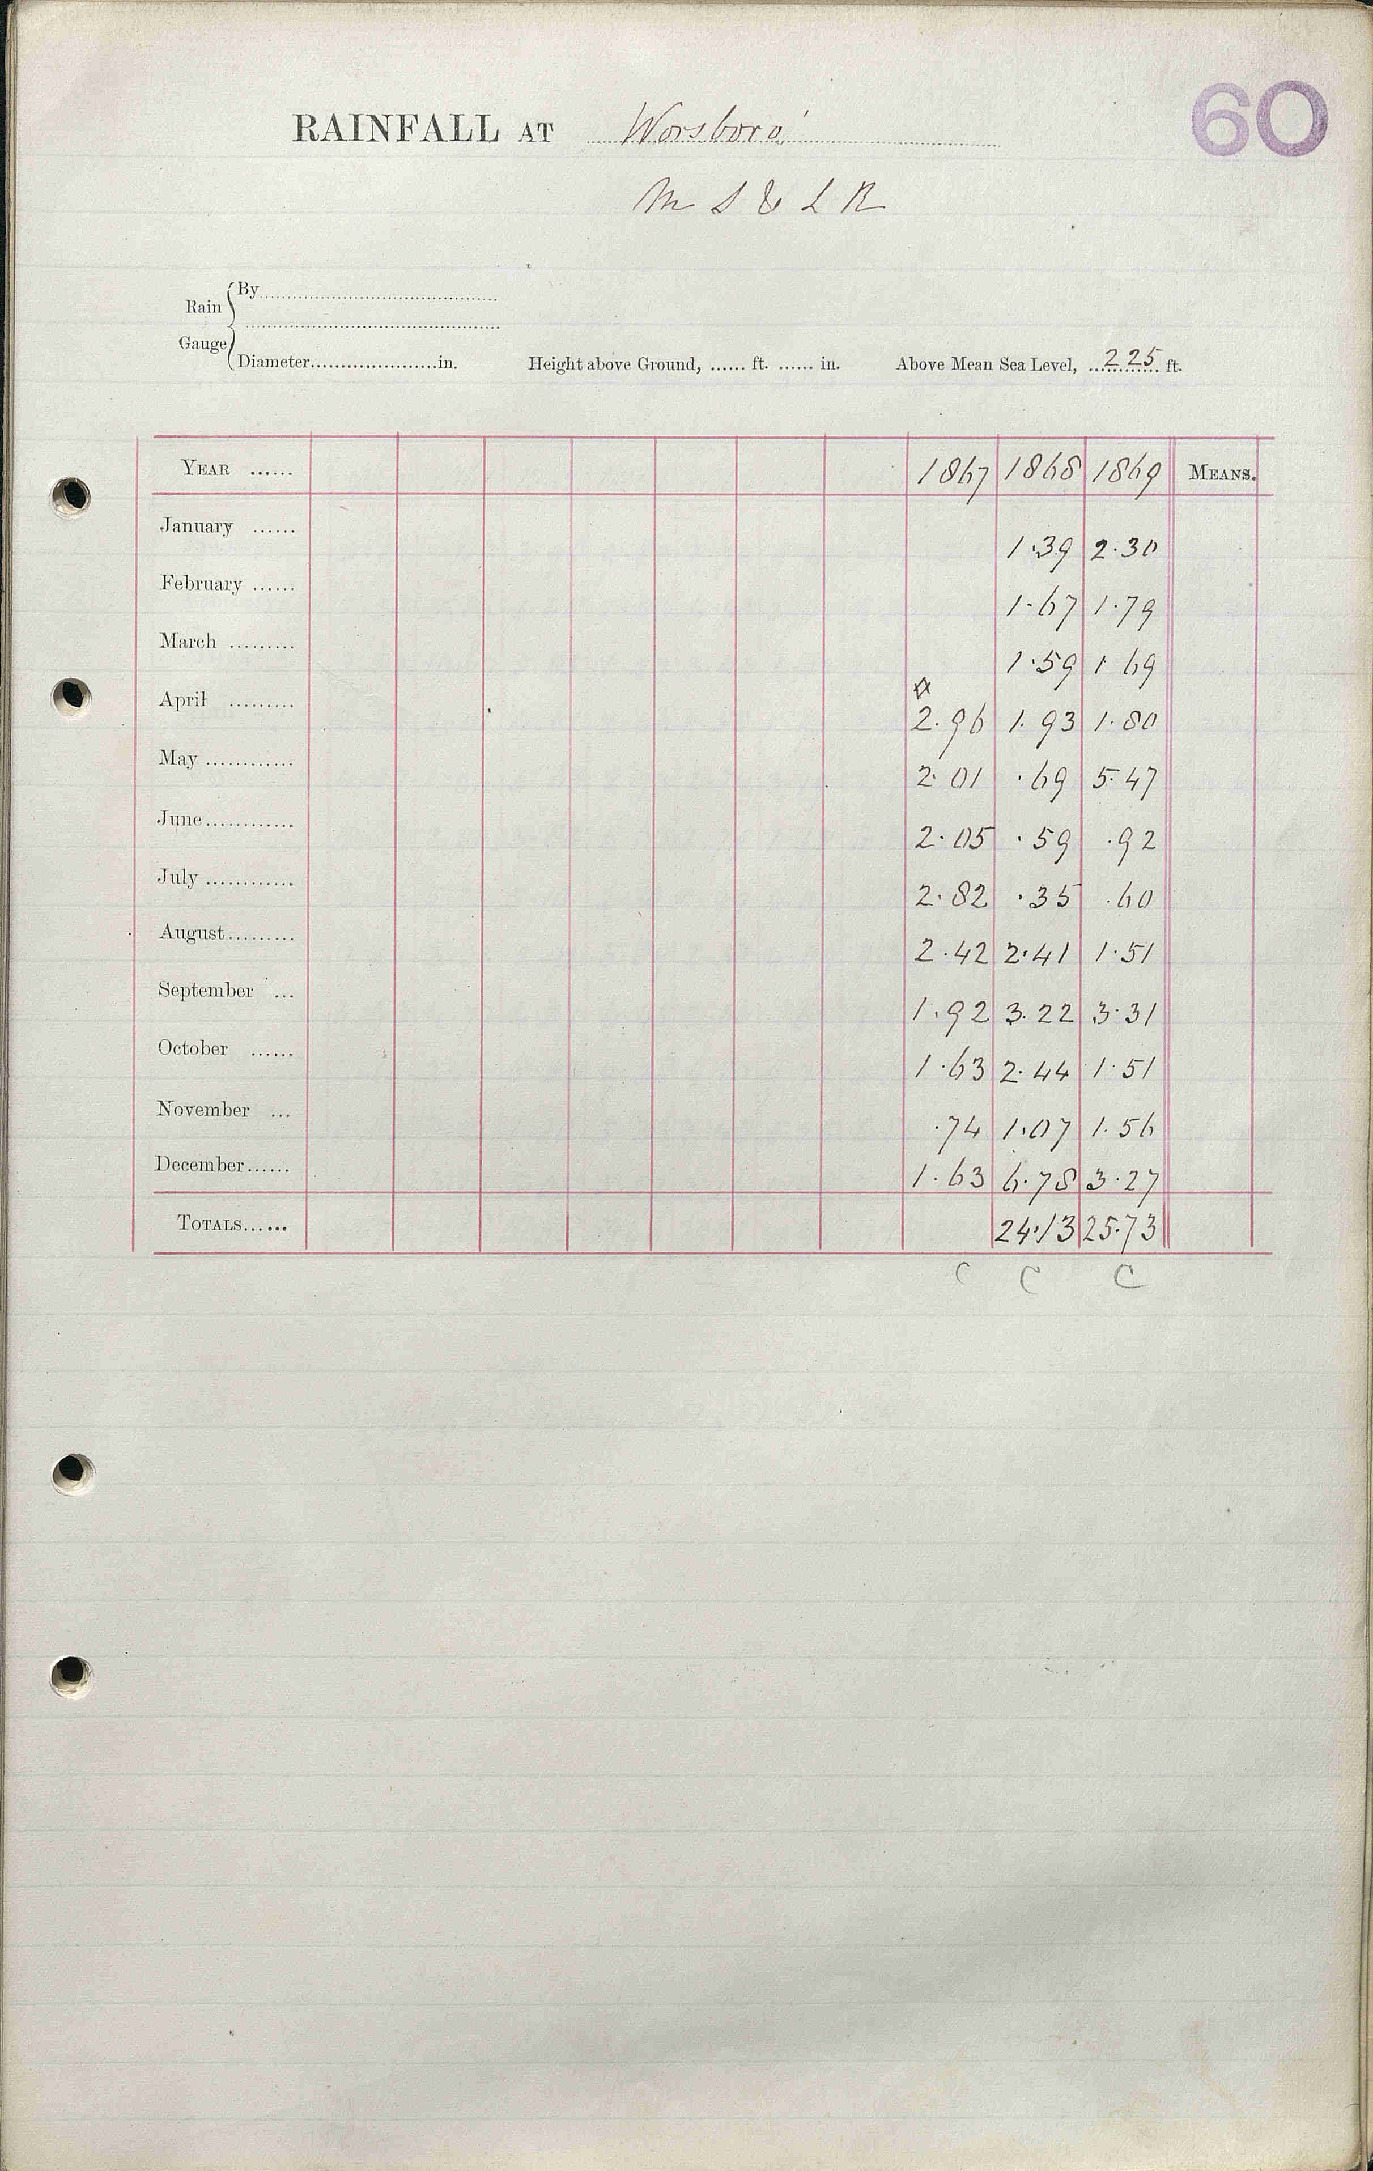 60
RAINFALL AT Worsboro'
M S & L R
Rain Gauge { By
Diameter in. Height above Ground, ...... ft. ...... in. Above Mean Sea Level, 225 ft.
YEAR ...... 1867 1868 1869 MEANS.
January ...... 1.39 2.30
February ...... 1.67 1.79
March ......... 1.59 1.69
April ......... 2.96 1.93 1.80
May ............ 2.01 .69 5.47
June ............ 2.05 .59 .92
July ............ 2.82 .35 .60
August ......... 2.42 2.41 1.51
September ... 1.92 3.22 3.31
October ...... 1.63 2.44 1.51
November ... .74 1.07 1.56
December ...... 1.63 6.78 3.27
TOTALS ...... 24.13 25.73
C C C